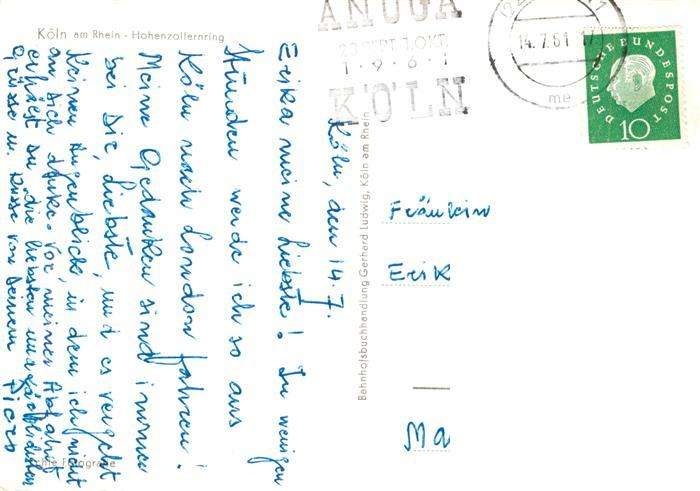 Köln am Rhein - Hohenzollernring
ANUGA
23. SEPT. 1. OKT.
1 9 6 1
KÖLN
14. 7. 61
DEUTSCHE BUNDESPOST
10
Köln, den 14. 7.
Erika meine Liebste! In wenigen
Stunden werde ich so aus
Köln nach London fahren!
Meine Gedanken sind immer
bei Dir, Liebste, und es vergeht
keinen Augenblick, in dem ich nicht
an Dich denke. Vor meiner Abfahrt
erhältst Du die liebsten
Grüsse u. Küsse von Deinem
Piero
Bahnhofsbuchhandlung Gerhard Ludwig, Köln am Rhein
Fräulein
Erik
Ma
Fotografie